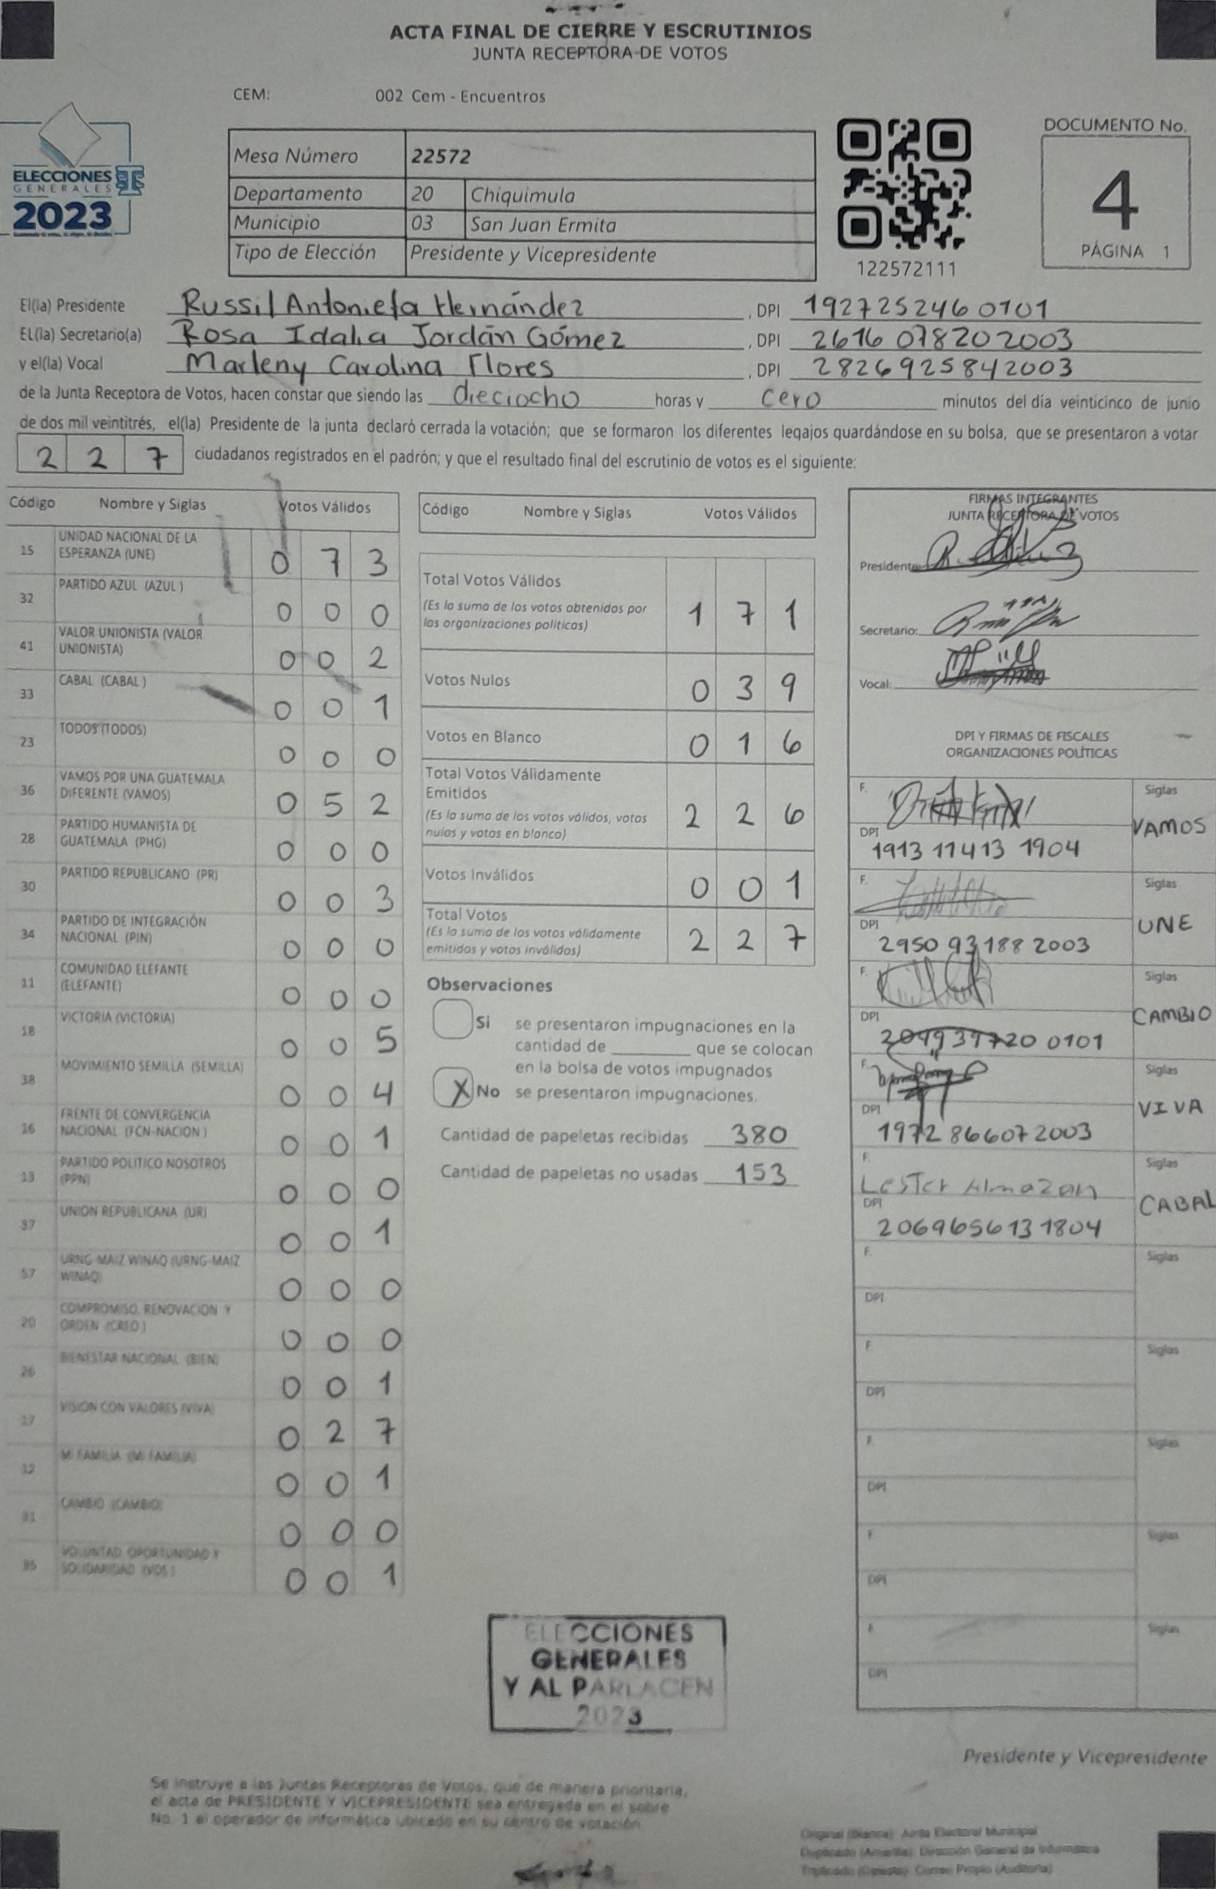 ACTA FINAL DE CIERRE Y ESCRUTINIOS
JUNTA RECEPTORA DE VOTOS
CEM: 002 Cem - Encuentros
ELECCIONES
GENERALES
2023
Mesa Número 22572
Departamento 20 Chiquimula
Municipio 03 San Juan Ermita
Tipo de Elección Presidente y Vicepresidente
122572111
DOCUMENTO No.
4
PÁGINA 1
El(la) Presidente Russil Antonieta Hernández, DPI 1927252460101
EL(la) Secretario(a) Rosa Idalia Jordán Gómez, DPI 2616078202003
y el(la) Vocal Marleny Carolina Flores, DPI 2826925842003
de la Junta Receptora de Votos, hacen constar que siendo las dieciocho horas y cero minutos del día veinticinco de junio
de dos mil veintitrés, el(la) Presidente de la junta declaró cerrada la votación; que se formaron los diferentes legajos guardándose en su bolsa, que se presentaron a votar
2 2 7 ciudadanos registrados en el padrón; y que el resultado final del escrutinio de votos es el siguiente:
Código Nombre y Siglas Votos Válidos
15 UNIDAD NACIONAL DE LA ESPERANZA (UNE) 0 7 3
32 PARTIDO AZUL (AZUL ) 0 0 0
41 VALOR UNIONISTA (VALOR UNIONISTA) 0 0 2
33 CABAL (CABAL ) 0 0 1
23 TODOS (TODOS) 0 0 0
36 VAMOS POR UNA GUATEMALA DIFERENTE (VAMOS) 0 5 2
28 PARTIDO HUMANISTA DE GUATEMALA (PHG) 0 0 0
30 PARTIDO REPUBLICANO (PR) 0 0 3
34 PARTIDO DE INTEGRACIÓN NACIONAL (PIN) 0 0 0
11 COMUNIDAD ELEFANTE (ELEFANTE) 0 0 0
18 VICTORIA (VICTORIA) 0 0 5
38 MOVIMIENTO SEMILLA (SEMILLA) 0 0 4
16 FRENTE DE CONVERGENCIA NACIONAL (FCN-NACION ) 0 0 1
13 PARTIDO POLITICO NOSOTROS (PPN) 0 0 0
37 UNION REPUBLICANA (UR) 0 0 1
57 URNG-MAIZ WINAQ (URNG-MAIZ WINAQ) 0 0 0
20 COMPROMISO, RENOVACION Y ORDEN (CREO ) 0 0 0
26 BIENESTAR NACIONAL (BIEN) 0 0 1
17 VISION CON VALORES (VIVA) 0 2 7
12 MI FAMILIA (MI FAMILIA) 0 0 1
CAMBIO (CAMBIO) 0 0 0
VOLUNTAD, OPORTUNIDAD Y SOLIDARIDAD (VOS ) 0 0 1
Código Nombre y Siglas Votos Válidos
Total Votos Válidos
(Es la suma de los votos obtenidos por
las organizaciones políticas) 1 7 1
Votos Nulos 0 3 9
Votos en Blanco 0 1 6
Total Votos Válidamente
Emitidos
(Es la suma de los votos válidos, votos
nulos y votos en blanco) 2 2 6
Votos Inválidos 0 0 1
Total Votos
(Es la suma de los votos válidamente
emitidos y votos inválidos) 2 2 7
Observaciones
Si se presentaron impugnaciones en la
cantidad de ________ que se colocan
en la bolsa de votos impugnados
X No se presentaron impugnaciones.
Cantidad de papeletas recibidas 380
Cantidad de papeletas no usadas 153
FIRMAS INTEGRANTES
JUNTA RECEPTORA DE VOTOS
Presidente:
Secretario:
Vocal:
DPI Y FIRMAS DE FISCALES
ORGANIZACIONES POLÍTICAS
F. Siglas
DPI VAMOS
1913 11413 1904
F. Siglas
DPI UNE
2950 93188 2003
F. Siglas
DPI CAMBIO
2099397200101
F. Siglas
DPI VIVA
1972 866072003
F. Siglas
Lester Almazan
DPI CABAL
2069656131804
F. Siglas
DPI
F. Siglas
DPI
F. Siglas
DPI
F. Siglas
DPI
F. Siglas
DPI
ELECCIONES
GENERALES
Y AL PARLACEN
2023
Presidente y Vicepresidente
Se instruye a las Juntas Receptoras de Votos, que de manera prioritaria,
el acta de PRESIDENTE Y VICEPRESIDENTE sea entregada en el sobre
No. 1 al operador de informática ubicado en su centro de votación
Original (Blanca): Junta Electoral Municipal
Duplicado (Amarilla): Dirección General de Informática
Triplicado (Celeste): Correo Propio (Auditoria)